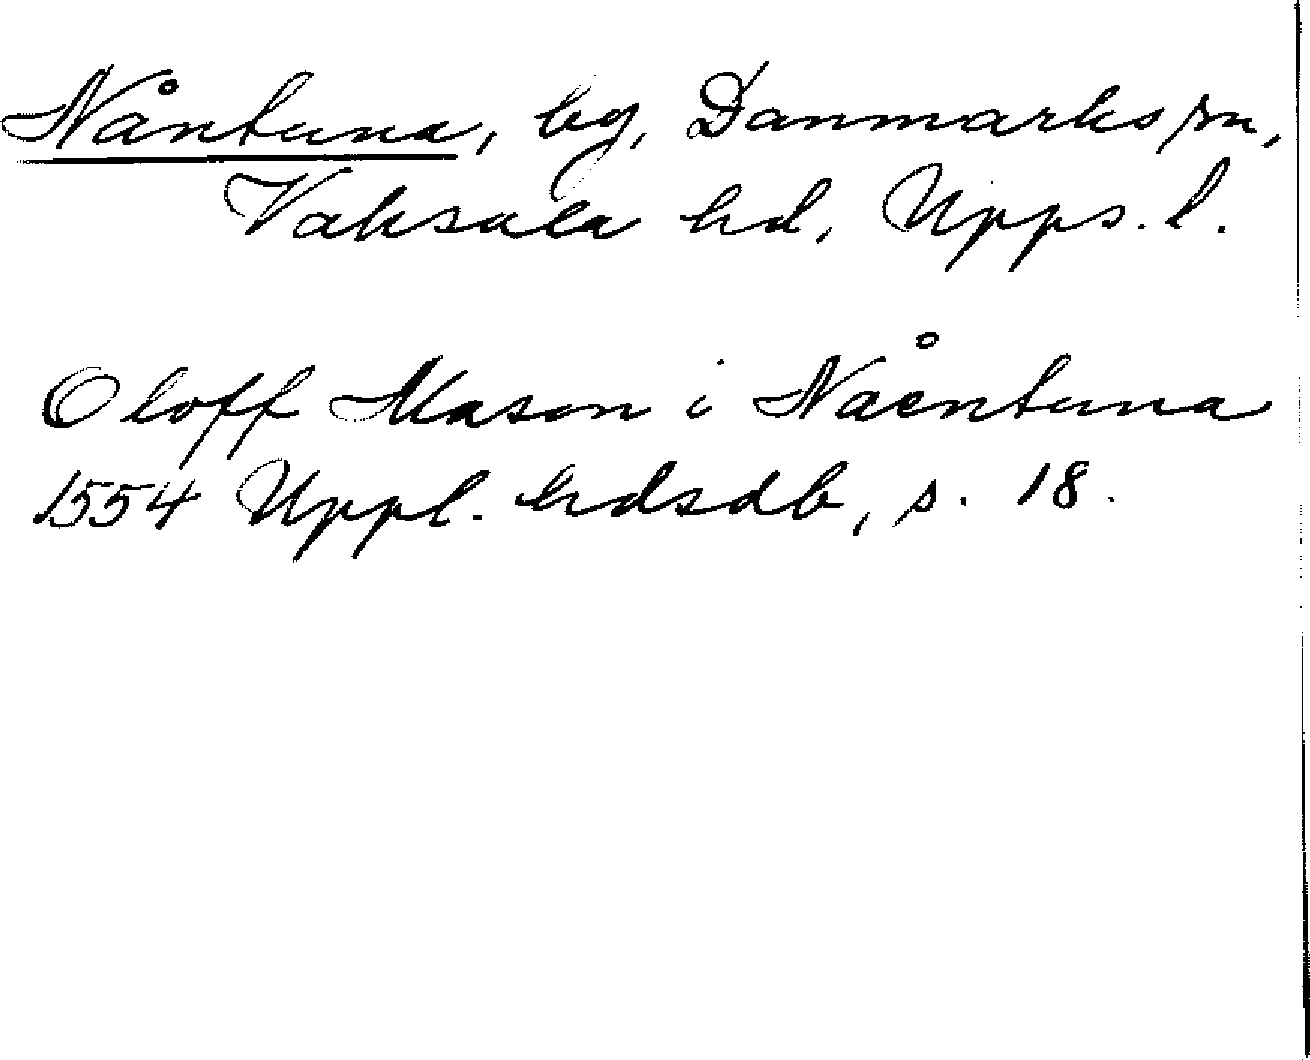 Nåntuna, by, Danmarks sn,
Vaksala hd, Upps. l.
Oloff Mason i Nåentuna
1554 Uppl. hdsdb, s. 18.